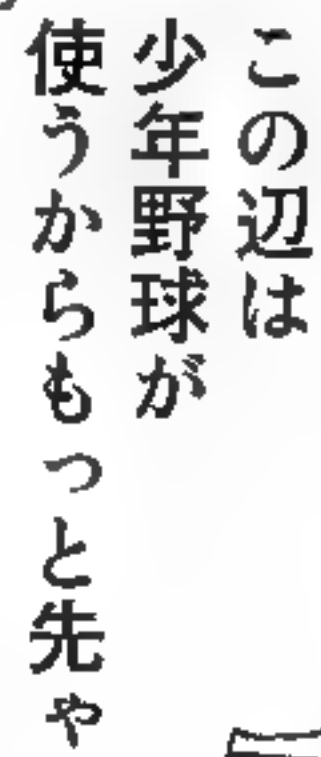 この辺は
少年野球が
使うからもっと先や